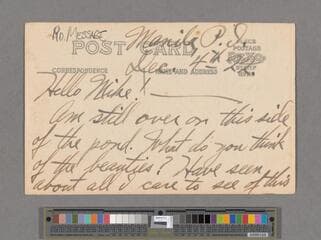 No Message
Manila P.I.
POST CARD
Dec. 4th
CORRESPONDENCE
NAME AND ADDRESS
PLACE
POSTAGE
STAMP
HERE
Hello Mike!
Am still over on this side
of the pond. What do you think
of the beauties? Have seen
about all I care to see of this